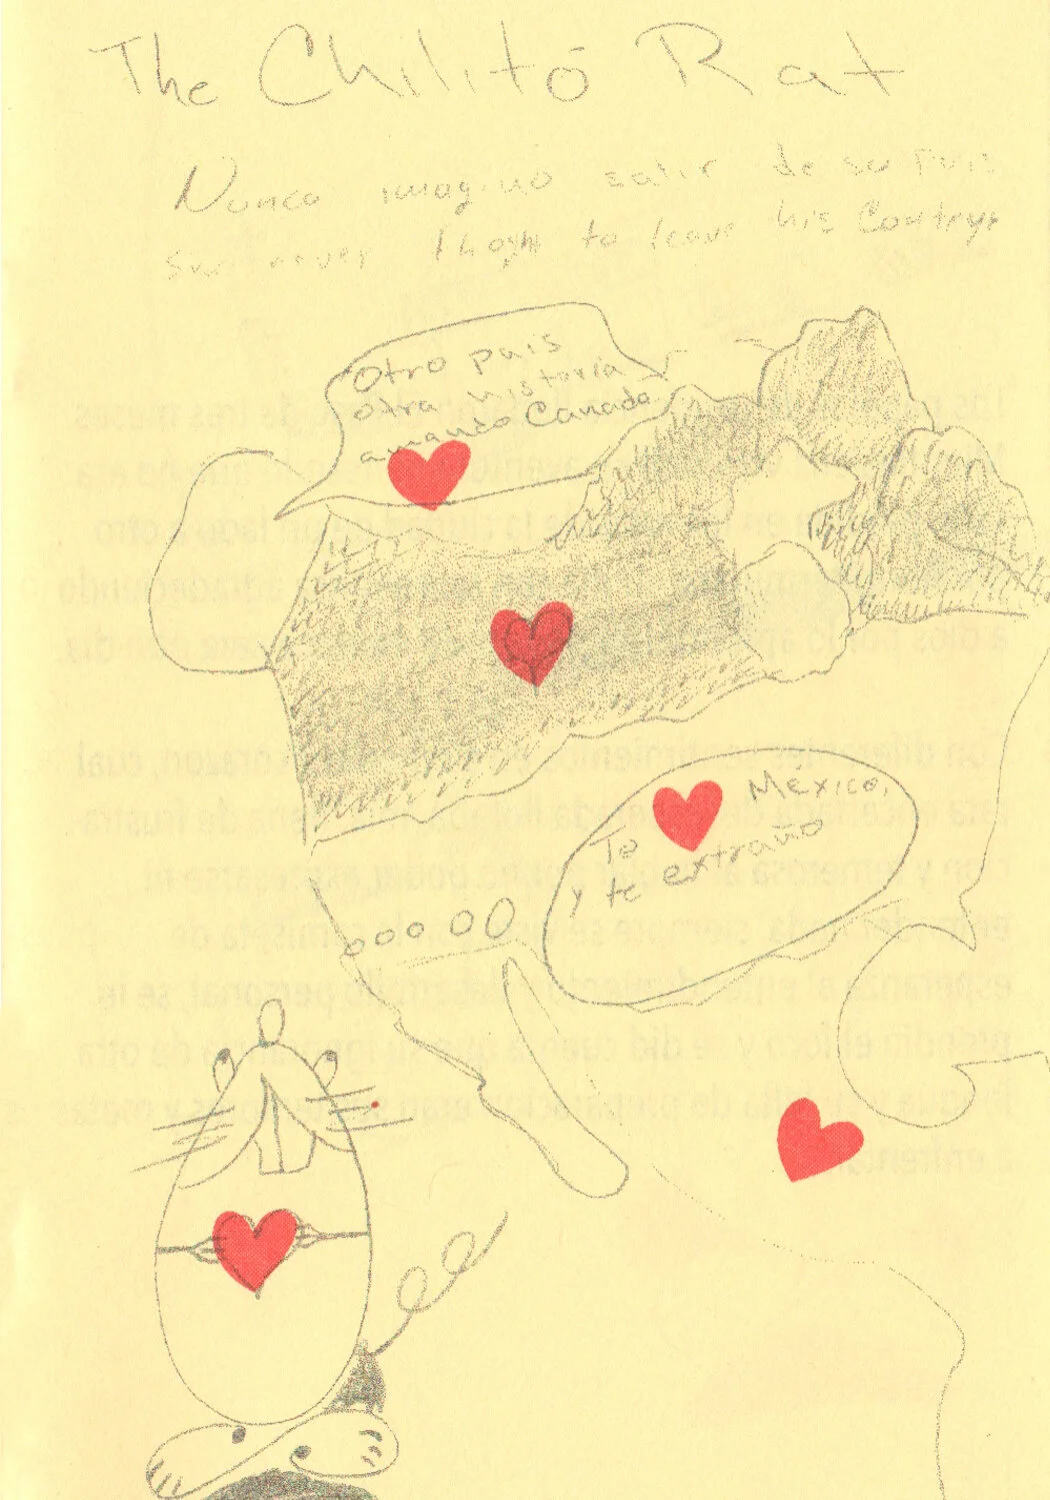 The Chilitó Rat
Nunca imagino salir de su Pais
never thoght to leave his Contrye
Otro pais
otra historia
amando Canada
México,
Ta
y te extraño